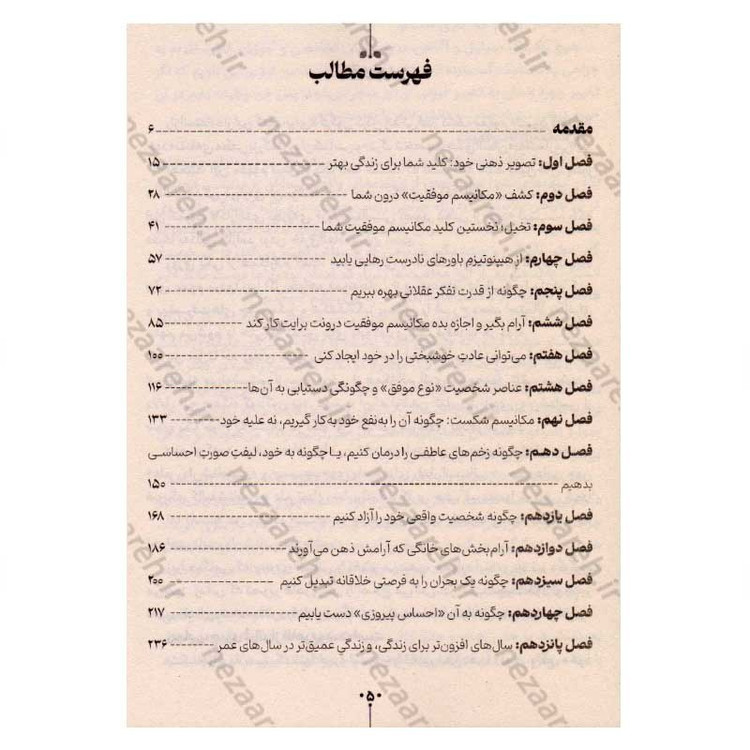 فهرست مطالب
مقدمه ---------- ۶
فصل اول: تصویر ذهنی خود: کلید شما برای زندگی بهتر ---------- ۱۵
فصل دوم: کشف «مکانیسم موفقیت» درون شما ---------- ۲۸
فصل سوم: تخیل؛ نخستین کلید مکانیسم موفقیت شما ---------- ۴۱
فصل چهارم: از هیپنوتیزمِ باورهای نادرست رهایی یابید ---------- ۵۷
فصل پنجم: چگونه از قدرت تفکر عقلانی بهره ببریم ---------- ۷۲
فصل ششم: آرام بگیر و اجازه بده مکانیسم موفقیت درونت برایت کار کند ---------- ۸۵
فصل هفتم: می‌توانی عادتِ خوشبختی را در خود ایجاد کنی ---------- ۱۰۰
فصل هشتم: عناصر شخصیت «نوع موفق» و چگونگی دستیابی به آن‌ها ---------- ۱۱۶
فصل نهم: مکانیسم شکست: چگونه آن را به‌نفع خود به‌کار گیریم، نه علیه خود ---------- ۱۳۳
فصل دهم: چگونه زخم‌های عاطفی را درمان کنیم، یا چگونه به خود، لیفتِ صورتِ احساسی
بدهیم ---------- ۱۵۰
فصل یازدهم: چگونه شخصیت واقعی خود را آزاد کنیم ---------- ۱۶۸
فصل دوازدهم: آرام‌بخش‌های خانگی که آرامش ذهن می‌آورند ---------- ۱۸۶
فصل سیزدهم: چگونه یک بحران را به فرصتی خلاقانه تبدیل کنیم ---------- ۲۰۰
فصل چهاردهم: چگونه به آن «احساس پیروزی» دست یابیم ---------- ۲۱۷
فصل پانزدهم: سال‌های افزون‌تر برای زندگی، و زندگیِ عمیق‌تر در سال‌های عمر ---------- ۲۳۶
۰۵۰
nezaareh.ir